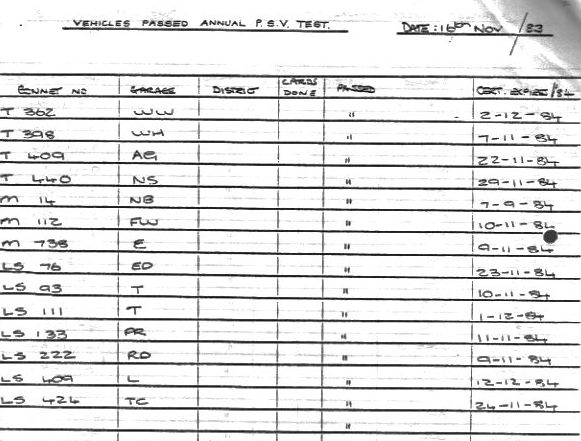 VEHICLES PASSED ANNUAL P.S.V. TEST. DATE: 16th NOV /83
BONNET NO GARAGE DISTRICT CARDS DONE PASSED CERT. EXPIRES/84
T 362 WW " 2-12-84
T 398 WH " 7-11-84
T 409 AG " 22-11-84
T 440 NS " 29-11-84
M 14 NB " 7-9-84
M 112 FW " 10-11-84
M 738 E " 9-11-84
LS 76 ED " 23-11-84
LS 93 T " 10-11-84
LS 111 T " 1-12-84
LS 133 AR " 11-11-84
LS 222 RD " 9-11-84
LS 409 L " 12-12-84
LS 424 TC " 24-11-84
"